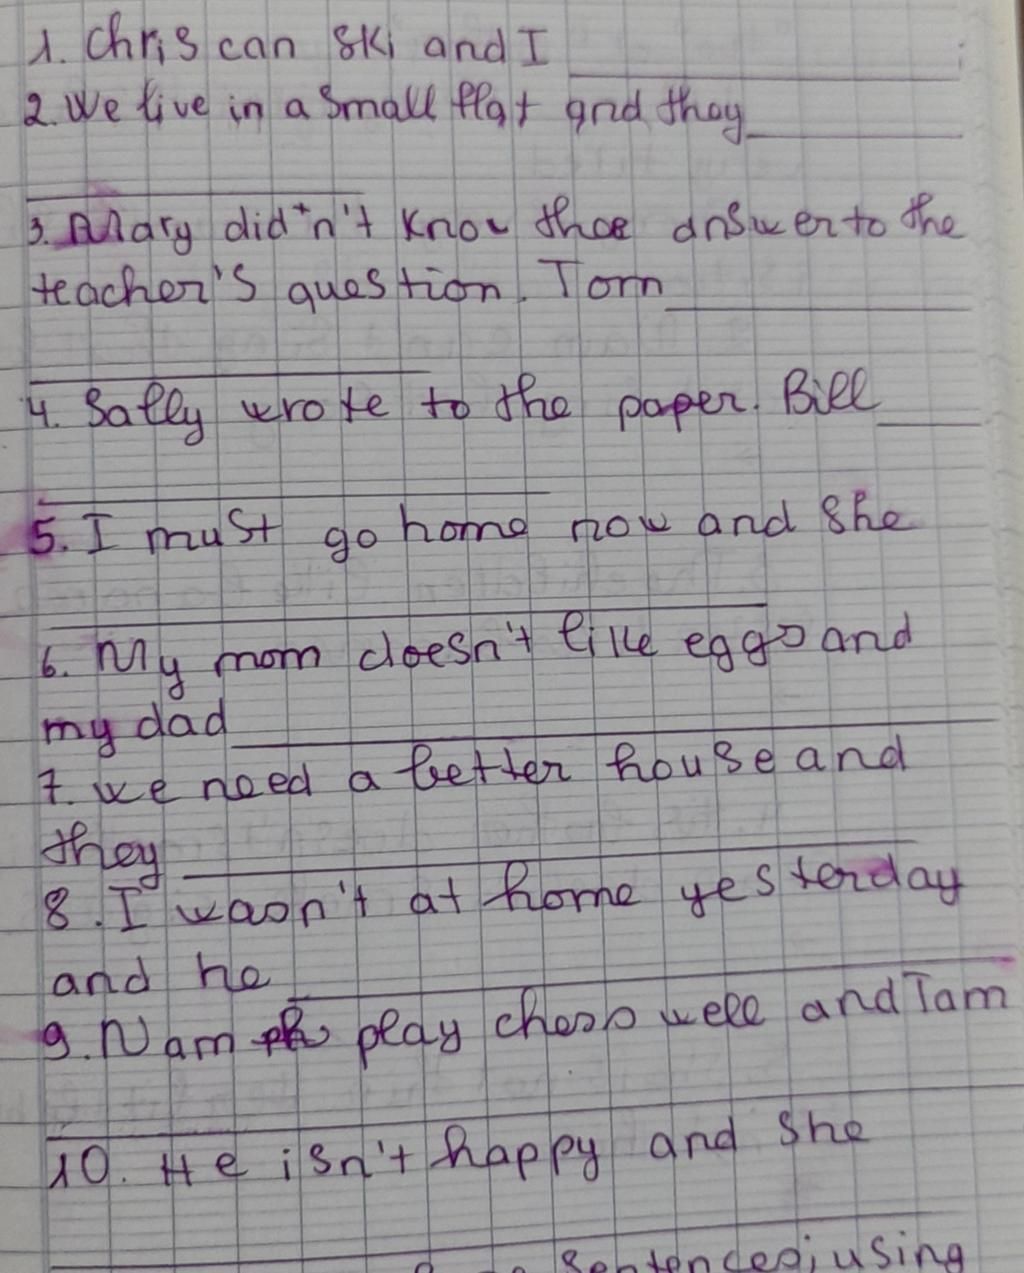 1. Chris can ski and I
2. We live in a small flat and they
3. Mary didn't know the answer to the
teacher's question. Tom
4. Sally wrote to the paper. Bill
5. I must go home now and she
6. My mom doesn't like eggs and
my dad
7. We need a better house and
they
8. I wasn't at home yesterday
and he
9. Nam play chess well and Tam
10. He isn't happy and she
sentences, using